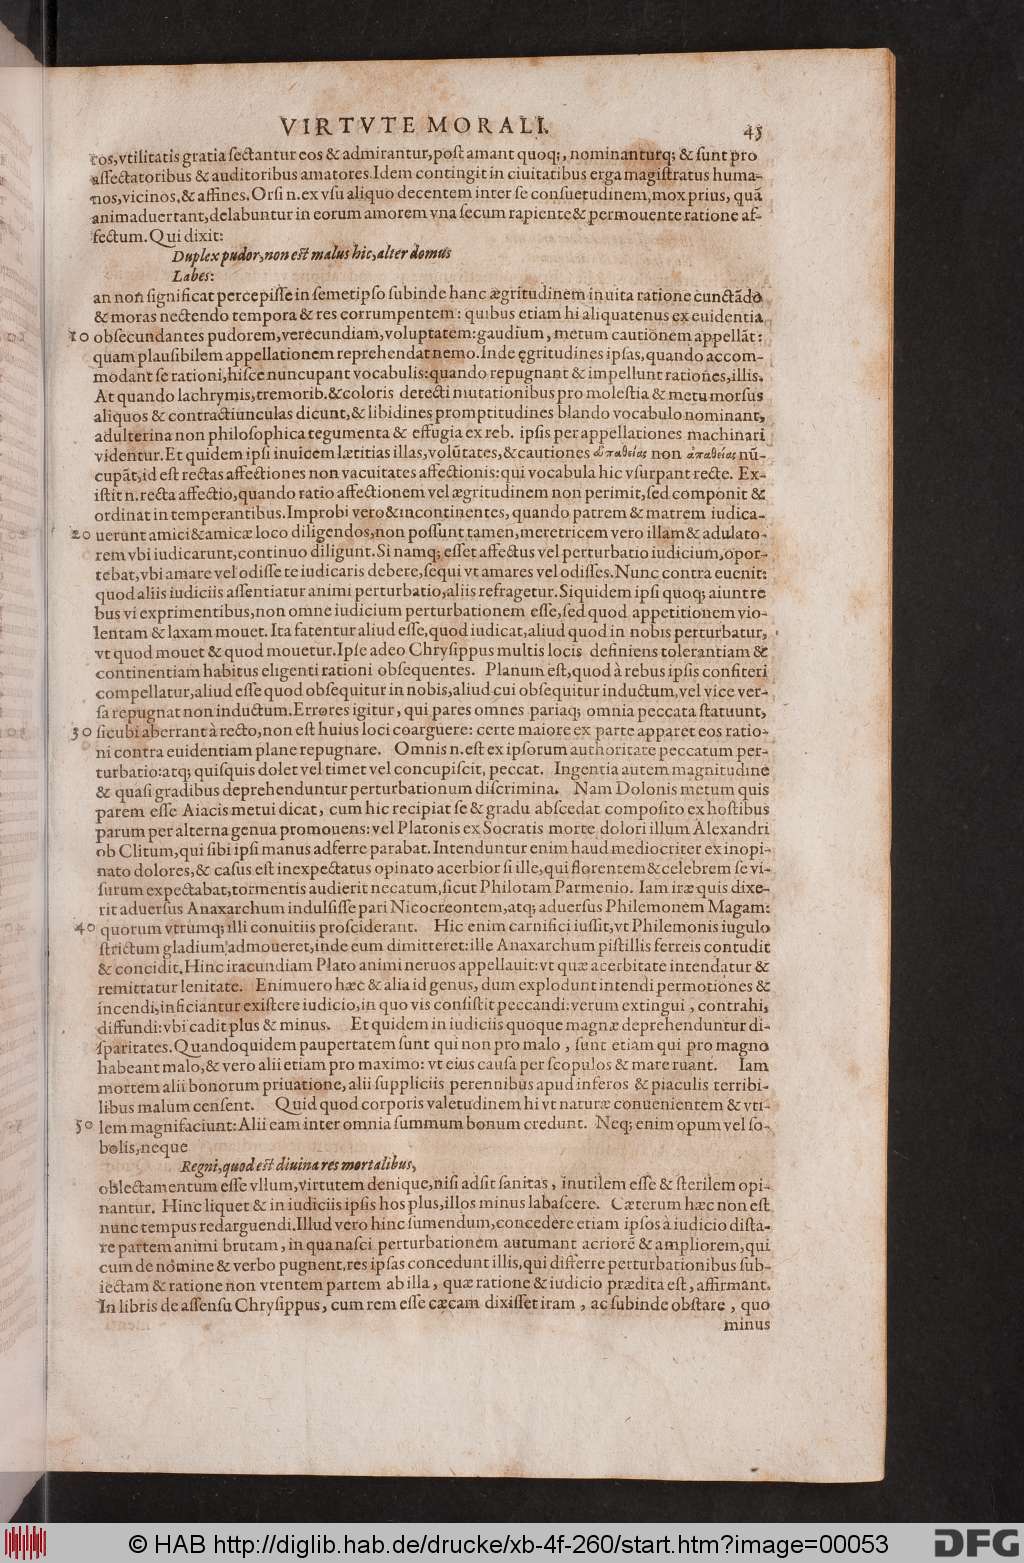 VIRTVTE MORALI. 45
ros,vtilitatis gratia sectantur eos & admirantur,post amant quoq;, nominanturq; & sunt pro
assectatoribus & auditoribus amatores.Idem contingit in ciuitatibus erga magistratus huma-
nos,vicinos,& affines.Orsi n.ex vsu aliquo decentem inter se consuetudinem,mox prius, quã
animaduertant,delabuntur in eorum amorem vna secum rapiente & permouente ratione af-
fectum.Qui dixit:
Duplex pudor,non est malus hic,alter domus
Labes:
an non significat percepisse in semetipso subinde hanc ægritudinem inuita ratione cunctãdo
& moras nectendo tempora & res corrumpentem: quibus etiam hi aliquatenus ex euidentia
10 obsecundantes pudorem,verecundiam,voluptatem:gaudium, metum cautionem appellãt:
quam plausibilem appellationem reprehendat nemo.Inde ęgritudines ipsas,quando accom-
modant se rationi,hisce nuncupant vocabulis:quando repugnant & impellunt rationes,illis.
At quando lachrymis,tremorib.&coloris detecti mutationibus pro molestia & metu morsus
aliquos & contractiunculas dicunt,& libidines promptitudines blando vocabulo nominant,
adulterina non philosophica tegumenta & effugia ex reb. ipsis per appellationes machinari
videntur.Et quidem ipsi inuicem lætitias illas,volũtates,&cautiones εὐπαθείας non ἀπαθείας nũ-
cupãt,id est rectas affectiones non vacuitates affectionis:qui vocabula hic vsurpant recte. Ex-
istit n.recta affectio,quando ratio affectionem vel ægritudinem non perimit,sed componit &
ordinat in temperantibus.Improbi vero&incontinentes, quando patrem & matrem iudica-
20 uerunt amici&amicæ loco diligendos,non possunt tamen,meretricem vero illam& adulato-
rem vbi iudicarunt,continuo diligunt.Si namq; esset affectus vel perturbatio iudicium,opor-
tebat,vbi amare vel odisse te iudicaris debere,sequi vt amares vel odisses.Nunc contra euenit:
quod aliis iudiciis assentiatur animi perturbatio,aliis refragetur.Siquidem ipsi quoq; aiunt re
bus vi exprimentibus,non omne iudicium perturbationem esse,sed quod appetitionem vio-
lentam & laxam mouet.Ita fatentur aliud esse,quod iudicat,aliud quod in nobis perturbatur,
vt quod mouet & quod mouetur.Ipse adeo Chrysippus multis locis definiens tolerantiam &
continentiam habitus eligenti rationi obsequentes. Planum est,quod à rebus ipsis confiteri
compellatur,aliud esse quod obsequitur in nobis,aliud cui obsequitur inductum,vel vice ver-
sa repugnat non inductum.Errores igitur, qui pares omnes pariaq; omnia peccata statuunt,
30 sicubi aberrant à recto,non est huius loci coarguere: certe maiore ex parte apparet eos ratio-
ni contra euidentiam plane repugnare. Omnis n.est ex ipsorum authoritate peccatum per-
turbatio:atq; quisquis dolet vel timet vel concupiscit, peccat. Ingentia autem magnitudine
& quasi gradibus deprehenduntur perturbationum discrimina. Nam Dolonis metum quis
parem esse Aiacis metui dicat, cum hic recipiat se & gradu abscedat composito ex hostibus
parum per alterna genua promouens: vel Platonis ex Socratis morte dolori illum Alexandri
ob Clitum,qui sibi ipsi manus adferre parabat.Intenduntur enim haud mediocriter ex inopi-
nato dolores,& casus est inexpectatus opinato acerbior si ille,qui florentem&celebrem se vi-
surum expectabat,tormentis audierit necatum,sicut Philotam Parmenio. Iam iræ quis dixe-
rit aduersus Anaxarchum indulsisse pari Nicocreontem,atq; aduersus Philemonem Magam:
40 quorum vtrumq; illi conuitiis prosciderant. Hic enim carnifici iussit,vt Philemonis iugulo
strictum gladium admoueret,inde eum dimitteret:ille Anaxarchum pistillis ferreis contudit
& concidit.Hinc iracundiam Plato animi neruos appellauit:vt quæ acerbitate intendatur &
remittatur lenitate. Enimuero hæc & alia id genus, dum explodunt intendi permotiones &
incendi,inficiantur existere iudicio,in quo vis consistit peccandi:verum extingui, contrahi,
diffundi:vbi cadit plus & minus. Et quidem in iudiciis quoque magnæ deprehenduntur di-
sparitates.Quandoquidem paupertatem sunt qui non pro malo, sunt etiam qui pro magno
habeant malo,& vero alii etiam pro maximo: vt eius causa per scopulos & mare ruant. Iam
mortem alii bonorum priuatione, alii suppliciis perennibus apud inferos & piaculis terribi-
libus malum censent. Quid quod corporis valetudinem hi vt naturæ conuenientem & vti-
50 lem magnifaciunt:Alii eam inter omnia summum bonum credunt. Neq; enim opum vel so-
bolis,neque
Regni,quod est diuina res mortalibus,
oblectamentum esse vllum,virtutem denique,nisi adsit sanitas, inutilem esse & sterilem opi-
nantur. Hinc liquet & in iudiciis ipsis hos plus,illos minus labascere. Cæterum hæc non est
nunc tempus redarguendi.Illud vero hinc sumendum,concedere etiam ipsos à iudicio dista-
re partem animi brutam, in qua nasci perturbationem autumant acriorẽ & ampliorem,qui
cum de nomine & verbo pugnent,res ipsas concedunt illis,qui differre perturbationibus sub-
iectam & ratione non vtentem partem ab illa, quæ ratione & iudicio prædita est, affirmant.
In libris de assensu Chrysippus, cum rem esse cæcam dixisset iram, ac subinde obstare, quo
minus
© HAB http://diglib.hab.de/drucke/xb-4f-260/start.htm?image=00053
DFG